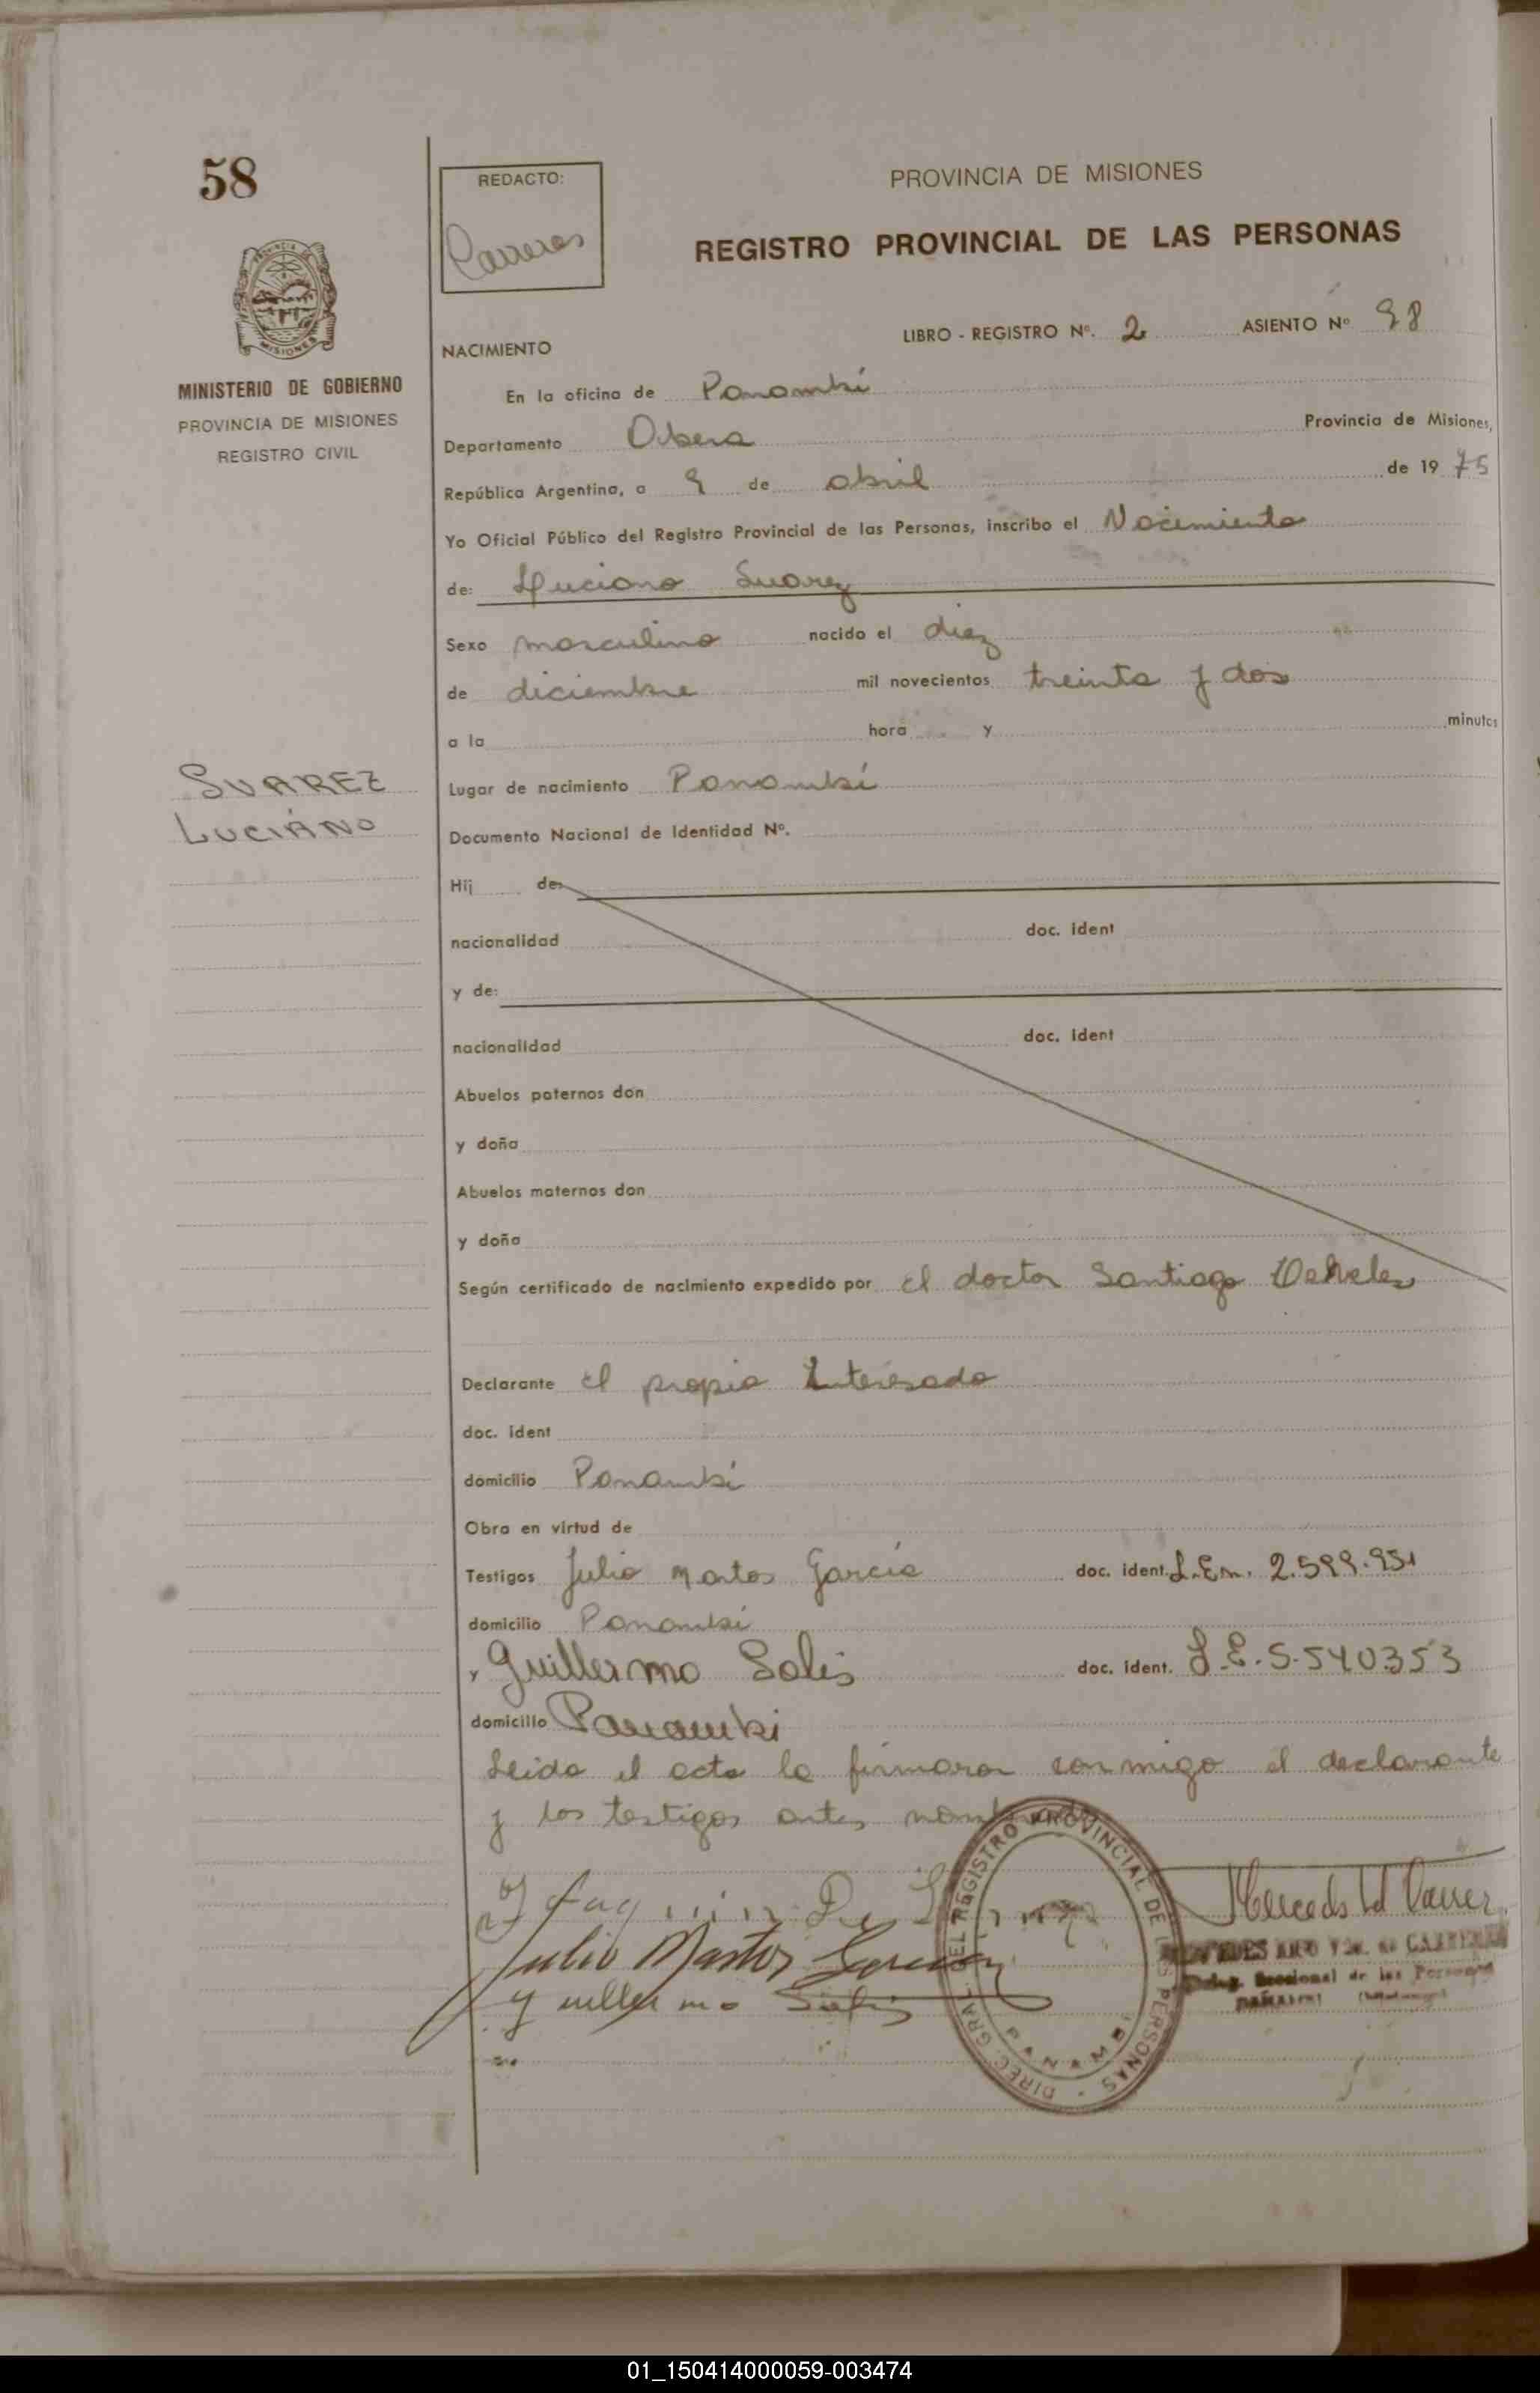 58
REDACTO:
Carreras
PROVINCIA DE MISIONES
REGISTRO PROVINCIAL DE LAS PERSONAS
MISIONES
MINISTERIO DE GOBIERNO
PROVINCIA DE MISIONES
REGISTRO CIVIL
NACIMIENTO
LIBRO - REGISTRO Nº. 2 ASIENTO Nº 98
En la oficina de Panambí
Departamento Obera Provincia de Misiones,
República Argentina, a 9 de abril de 1975
Yo Oficial Público del Registro Provincial de las Personas, inscribo el Nacimiento
de: Luciano Suarez
Sexo masculino nacido el diez
de diciembre mil novecientos treinta y dos
a la hora y minutos
SUAREZ
LUCIANO
Lugar de nacimiento Panambí
Documento Nacional de Identidad Nº.
Hij de:
nacionalidad doc. ident
y de:
nacionalidad doc. ident
Abuelos paternos don
y doña
Abuelos maternos don
y doña
Según certificado de nacimiento expedido por el doctor Santiago
Declarante el propio Interesado
doc. ident
domicilio Panambí
Obra en virtud de
Testigos Julio Martos García doc. ident. L.Em. 2.599.951
domicilio Panambí
y Guillermo Solis doc. ident. L.E.5.540353
domicilio Panambi
Leida el acta la firmaron conmigo el declarante
y los testigos antes
Julio Martos Garcia
Guillermo Solis
DIREC. GRAL. DEL REGISTRO PROVINCIAL DE LAS PERSONAS
PANAMBI
01_150414000059-003474